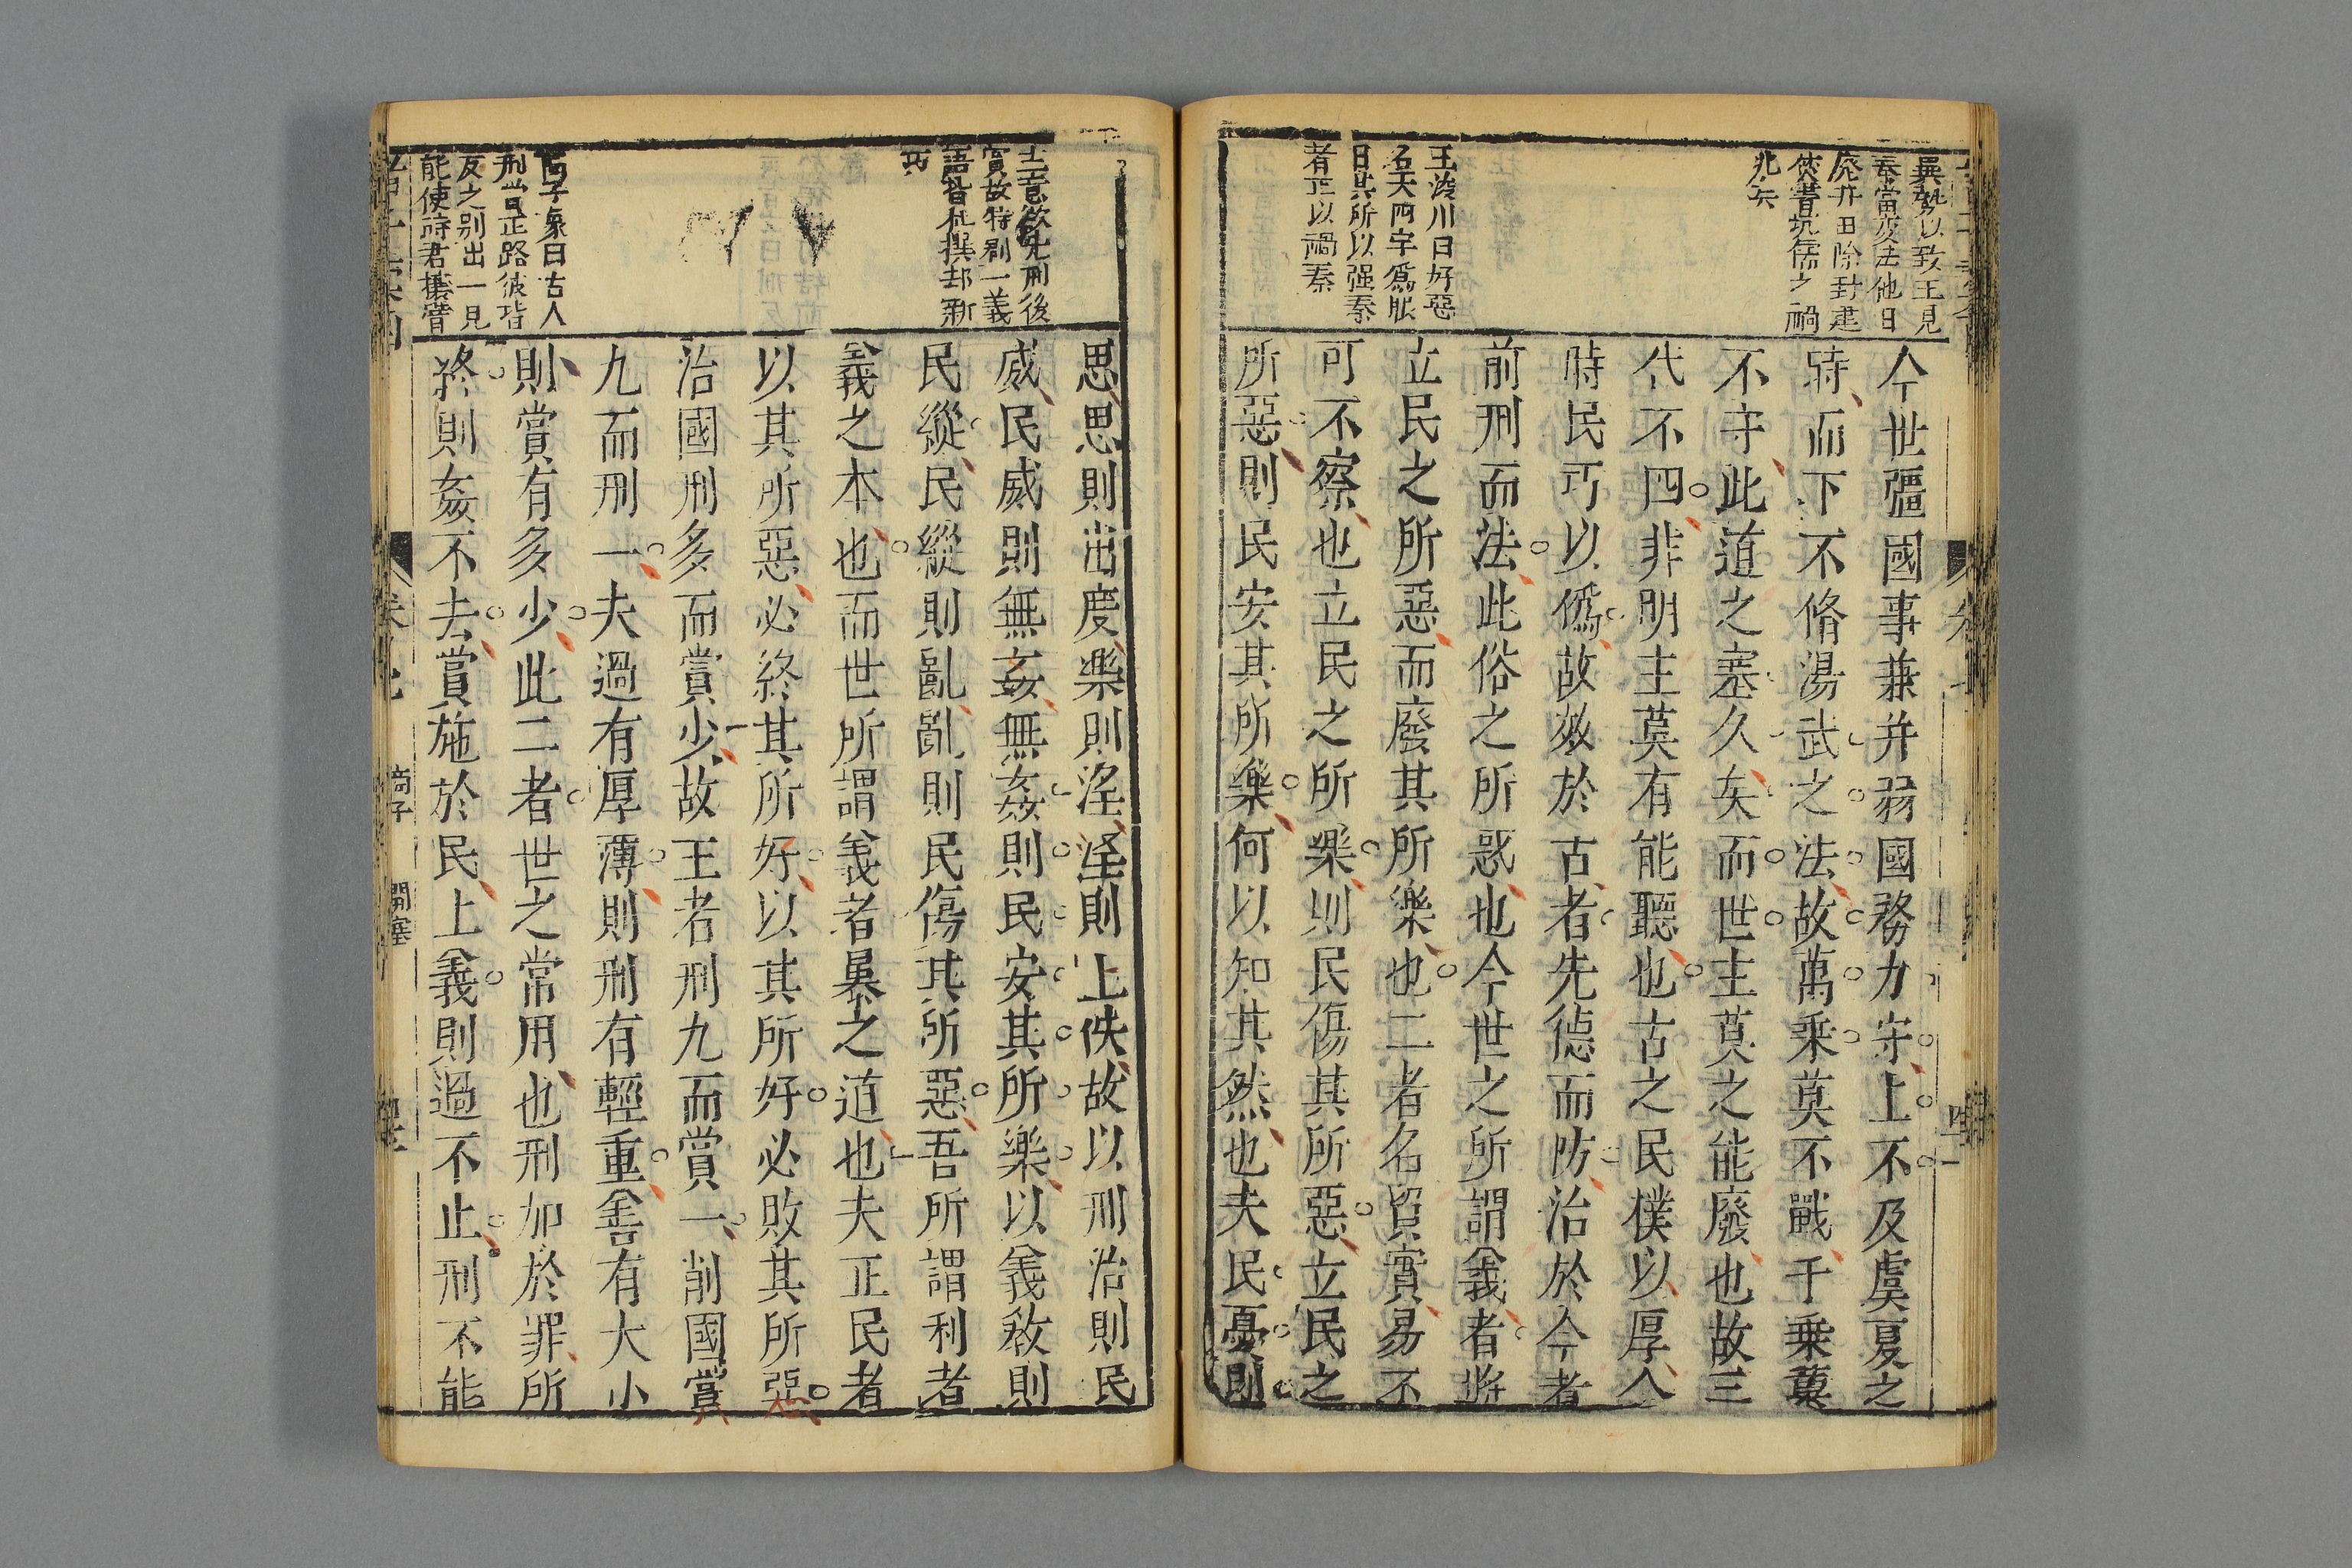 異勢以致王見
秦當変法他日
廃井田除封建
焚書坑儒之禍
兆矣
今世彊國事兼并弱國務力守上不及虞夏之
時而下不脩湯武之法故萬乗莫不戰千乗莫
不守此道之塞久矣而世主莫之能廢也故三
代不四非明主莫有能聽也古之民樸以厚今
時民巧以僞故效於古者先德而防治於今者
前刑而法此俗之所惑也今世之所謂義者將
立民之所惡而廢其所樂也二者名貿實易不
可不察也立民之所樂則民傷其所惡立民之
所惡則民安其所樂何以知其然也夫民憂則
王浚川曰好惡
名夭四字爲眼
曰其所以强秦
者正以禍秦
思思則出度樂則滛滛則上佚故以刑治則民
威民威則無姦無姦則民安其所樂以義敎則
民縱民縱則亂亂則民傷其所惡吾所謂利者
義之本也而世所謂義者暴之道也夫正民者
以其所惡必終其所好以其所好必敗其所惡
治國刑多而賞少故王者刑九而賞一削國賞
九而刑一夫過有厚薄則刑有輕重善有大小
則賞有多少此二者世之常用也刑加於罪所
終則姦不去賞施於民上義則過不止刑不能
主意欲先刑後
賞故特剏一義
語皆杜撰却新
巧
商子象曰古人
刑賞正路彼皆
反之别出一見
能使時君攘臂
卷七
商子
開塞